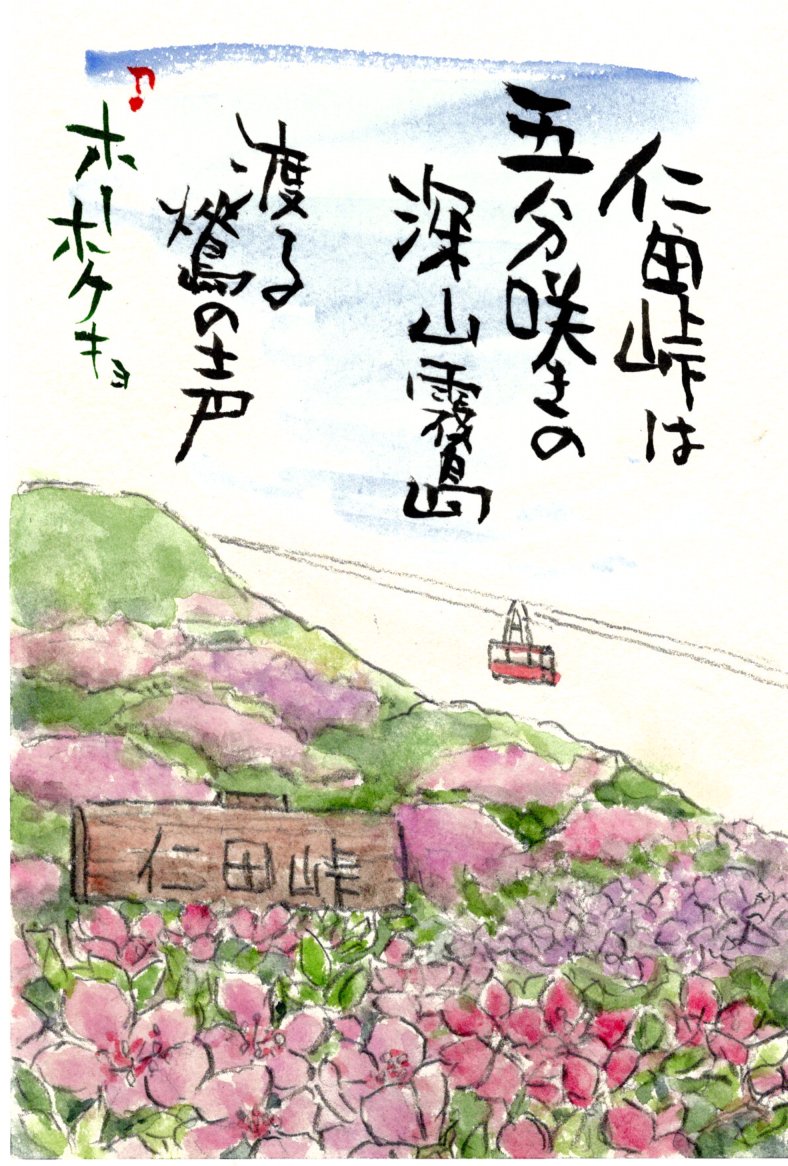 仁田峠は
五分咲きの
深山霧島
渡る
鶯の声
♪ホーホケキョ
仁田峠